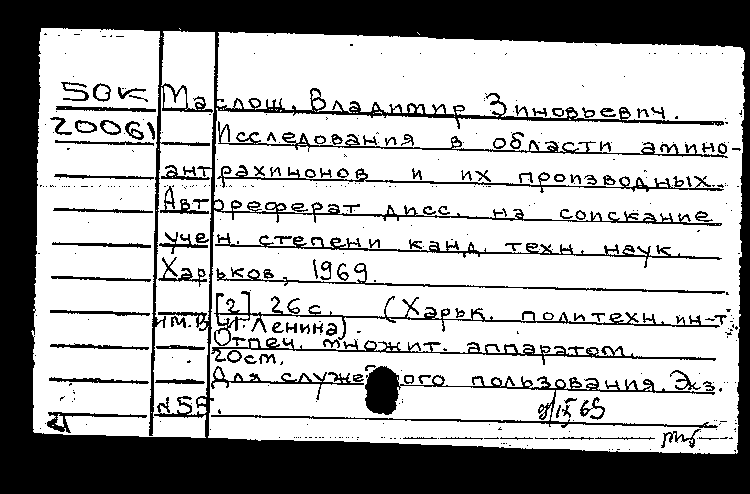 50К Маслош, Владимир Зиновьевич.
20061 Исследования в области амино-
антрахинонов и их производных.
Автореферат дисс. на соискание
учен. степени канд. техн. наук.
Харьков, 1969.
[2], 26 с. (Харьк. политехн. ин-т
им. В.И. Ленина).
Отпеч. множит. аппаратом.
20см.
Для служебного пользования. Экз.
№55.
21